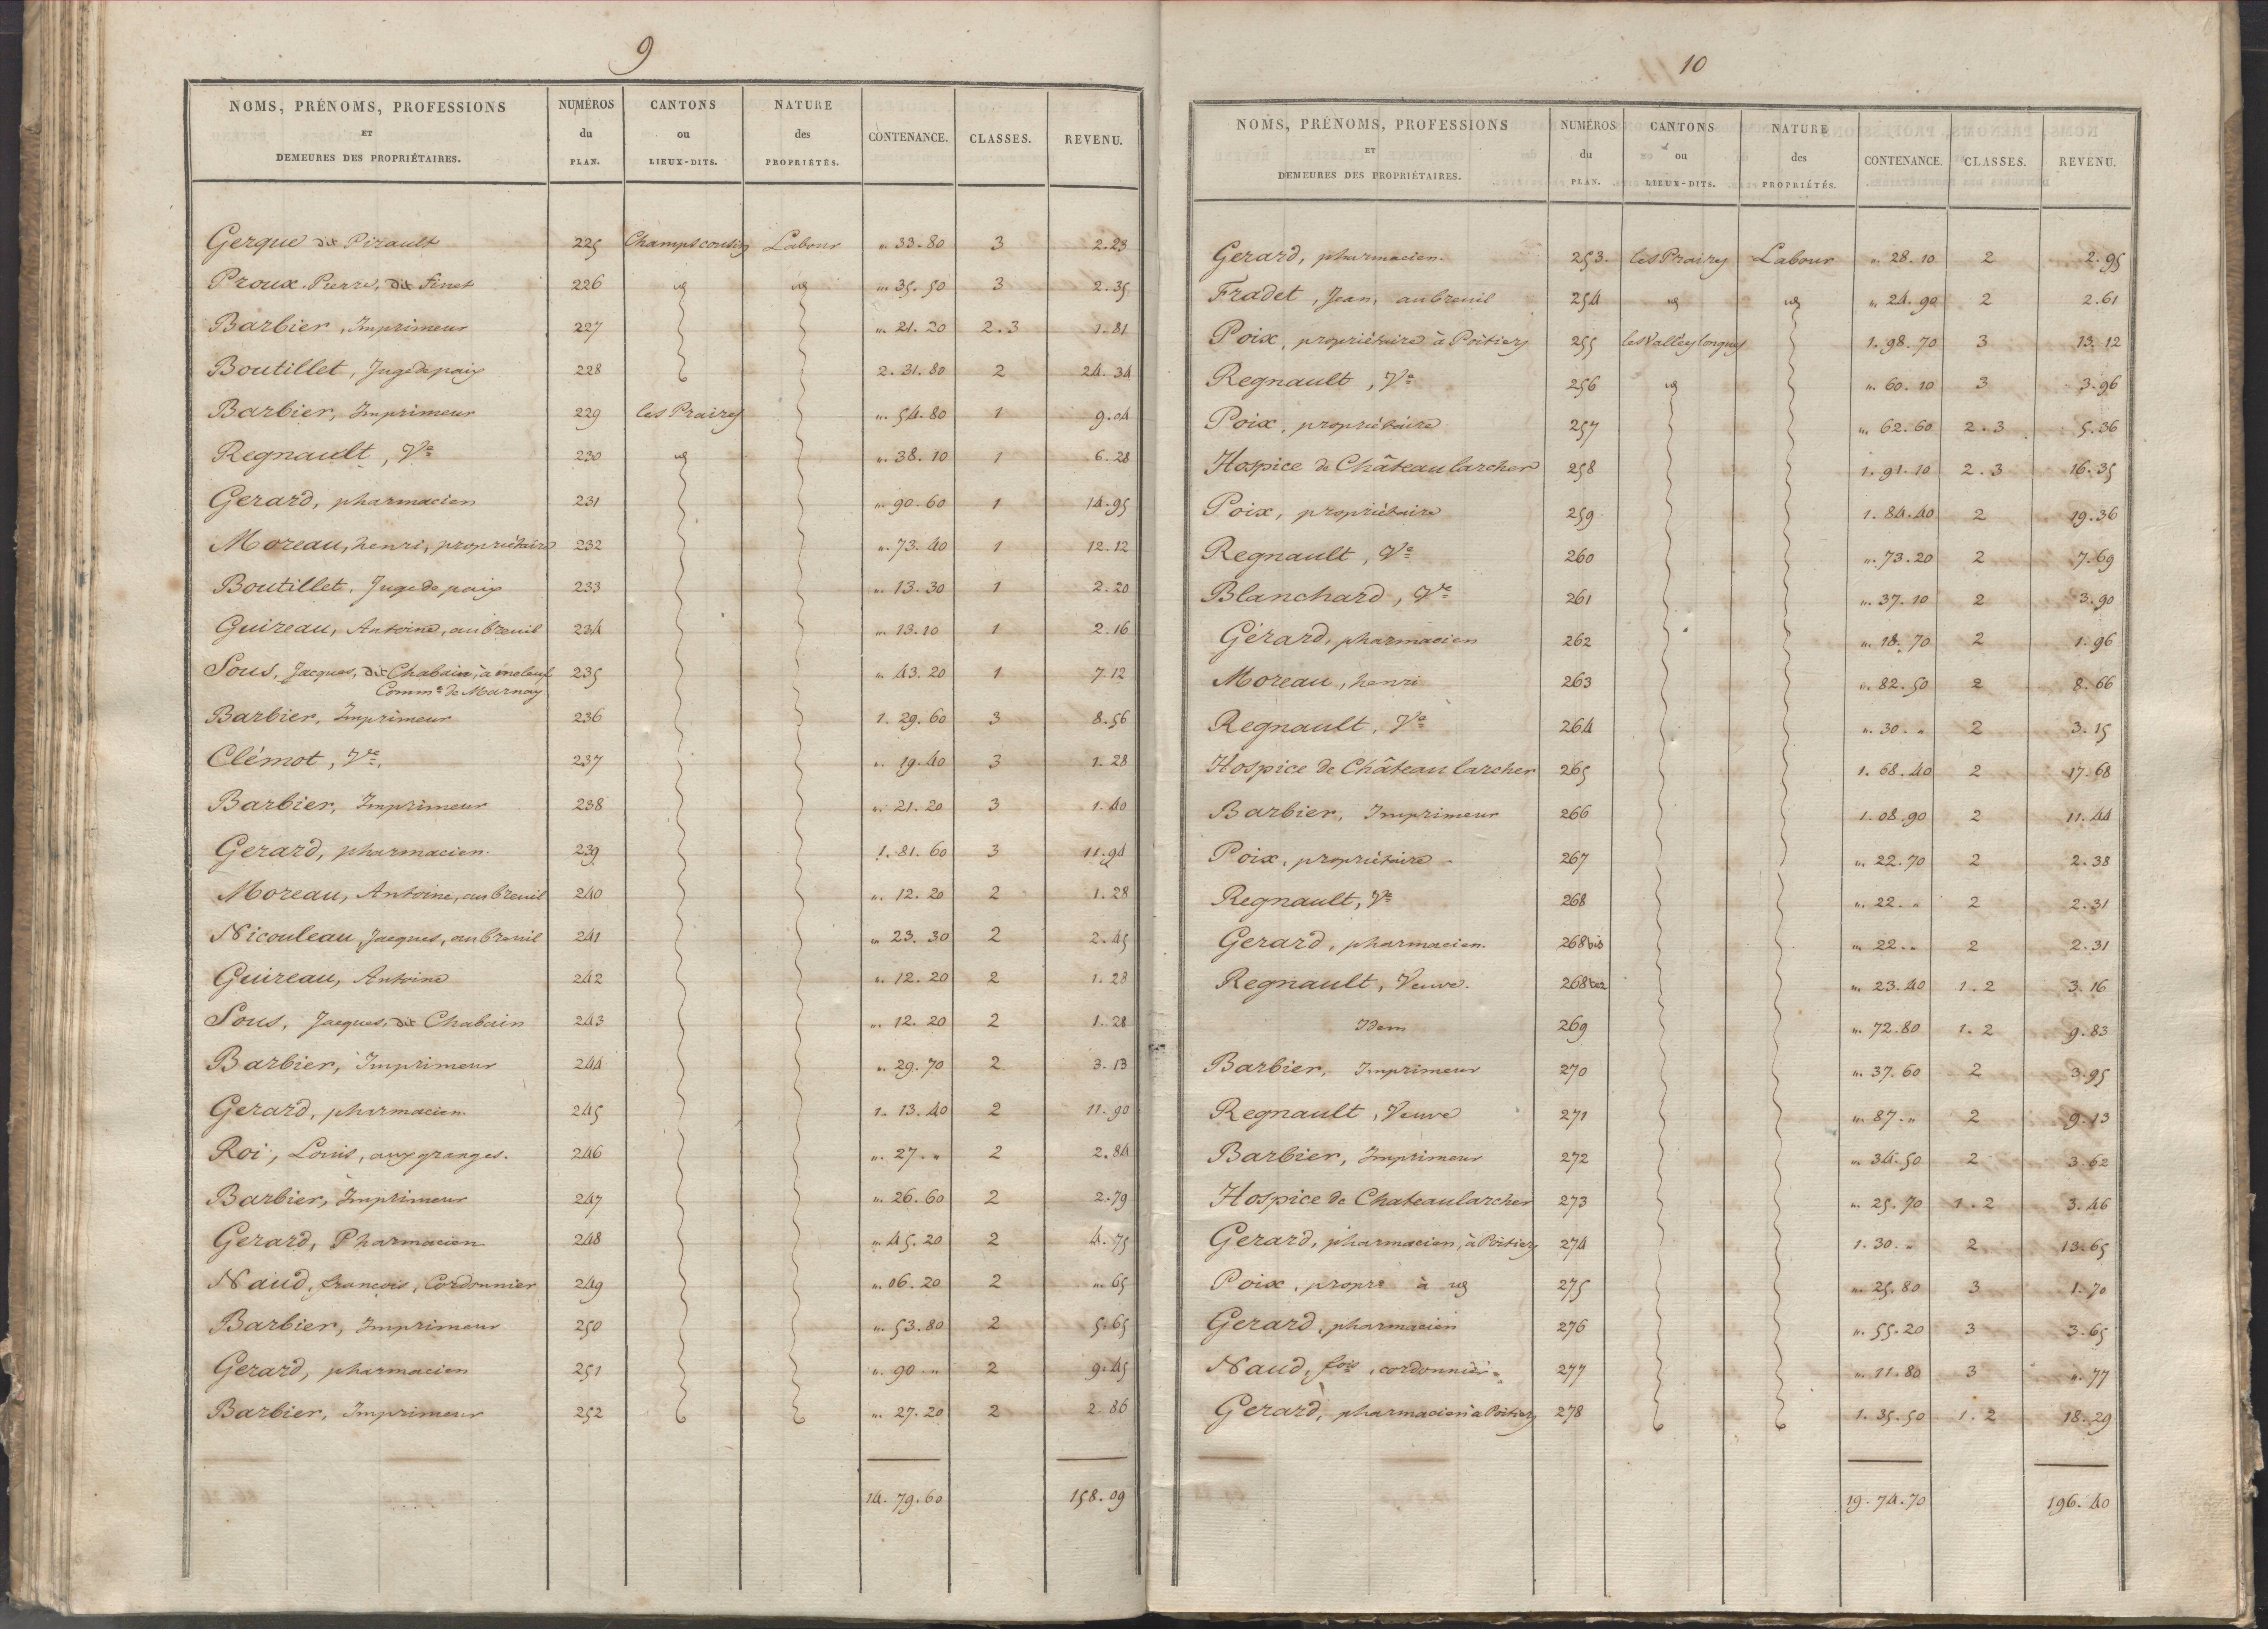 9
NOMS, PRÉNOMS, PROFESSIONS ET DEMEURES DES PROPRIÉTAIRES. NUMÉROS du PLAN. CANTONS ou LIEUX-DITS. NATURE des PROPRIÉTÉS. CONTENANCE. CLASSES. REVENU.
Gerque dit Pirault 225 Champs cousin Labour " 33.80 3 2.23
Proux Pierre, dit finet 226 id id " 35.50 3 2.35
Barbier, Imprimeur 227 " 21.20 2.3 1.81
Boutillet, Juge de paix 228 2.31.80 2 24.34
Barbier, Imprimeur 229 les Prairies " 54.80 1 9.04
Regnault, Ve 230 id " 38.10 1 6.28
Gerard, pharmacien 231 " 90.60 1 14.95
Moreau, henri, propriétaire 232 " 73.40 1 12.12
Boutillet, Juge de paix 233 " 13.30 1 2.20
Guireau, Antoine, au breuil 234 " 13.10 1 2.16
Sous, Jacques, dit Chabain, à 235 " 43.20 1 7.12
Comme de Marnay
Barbier, Imprimeur 236 1.29.60 3 8.56
Clémot, Ve. 237 " 19.40 3 1.28
Barbier, Imprimeur 238 " 21.20 3 1.40
Gerard, pharmacien. 239 1.81.60 3 11.94
Moreau, Antoine, au breuil 240 " 12.20 2 1.28
Nicouleau, Jacques, au breuil 241 " 23.30 2 2.45
Guireau, Antoine 242 " 12.20 2 1.28
Sous, Jacques, dit Chabain 243 " 12.20 2 1.28
Barbier, Imprimeur 244 " 29.70 2 3.13
Gerard, pharmacien 245 1.13.40 2 11.90
Roi, Louis, aux granges. 246 " 27. " 2 2.84
Barbier, Imprimeur 247 " 26.60 2 2.79
Gerard, Pharmacien 248 " 45.20 2 4.75
Naud, françois, Cordonnier 249 " 06.20 2 " 65
Barbier, Imprimeur 250 " 53.80 2 5.65
Gerard, pharmacien 251 " 90 " 2 9.45
Barbier, Imprimeur 252 " 27.20 2 2.86
14.79.60 158.09
10
NOMS, PRÉNOMS, PROFESSIONS ET DEMEURES DES PROPRIÉTAIRES. NUMÉROS du PLAN. CANTONS ou LIEUX-DITS. NATURE des PROPRIÉTÉS. CONTENANCE. CLASSES. REVENU.
Gerard, pharmacien. 253 les Prairies Labour " 28.10 2 2.95
Fradet, Jean, au breuil 254 id id " 24.90 2 2.61
Poix, propriétaire à Poitiers 255 les Vallées longues 1.98.70 3 13.12
Regnault, Ve 256 id " 60.10 3 3.96
Poix, propriétaire 257 " 62.60 2.3 5.36
Hospice de Château larcher 258 1.91.10 2.3 16.35
Poix, propriétaire 259 1.84.40 2 19.36
Regnault, Ve 260 " 73.20 2 7.69
Blanchard, Ve 261 " 37.10 2 3.90
Gérard, pharmacien 262 " 18.70 2 1.96
Moreau, henri 263 " 82.50 2 8.66
Regnault, Ve 264 " 30. " 2 3.15
Hospice de Château larcher 265 1.68.40 2 17.68
Barbier, Imprimeur 266 1.08.90 2 11.44
Poix, propriétaire 267 " 22.70 2 2.38
Regnault, Ve 268 " 22. " 2 2.31
Gerard, pharmacien. 268 bis " 22. " 2 2.31
Regnault, Veuve. 268 ter " 23.40 1.2 3.16
Idem 269 " 72.80 1.2 9.83
Barbier, Imprimeur 270 " 37.60 2 3.95
Regnault, Veuve 271 " 87. " 2 9.13
Barbier, Imprimeur 272 " 34.50 2 3.62
Hospice de Chateau larcher 273 " 25.70 1.2 3.46
Gerard, pharmacien, à Poitiers 274 1.30. " 2 13.65
Poix, propre à id 275 " 25.80 3 1.70
Gerard, pharmacien 276 " 55.20 3 3.65
Naud, fois, cordonnier 277 " 11.80 3 " 77
Gerard, pharmacien à Poitiers 278 1.35.50 1.2 18.29
19.74.70 196.40